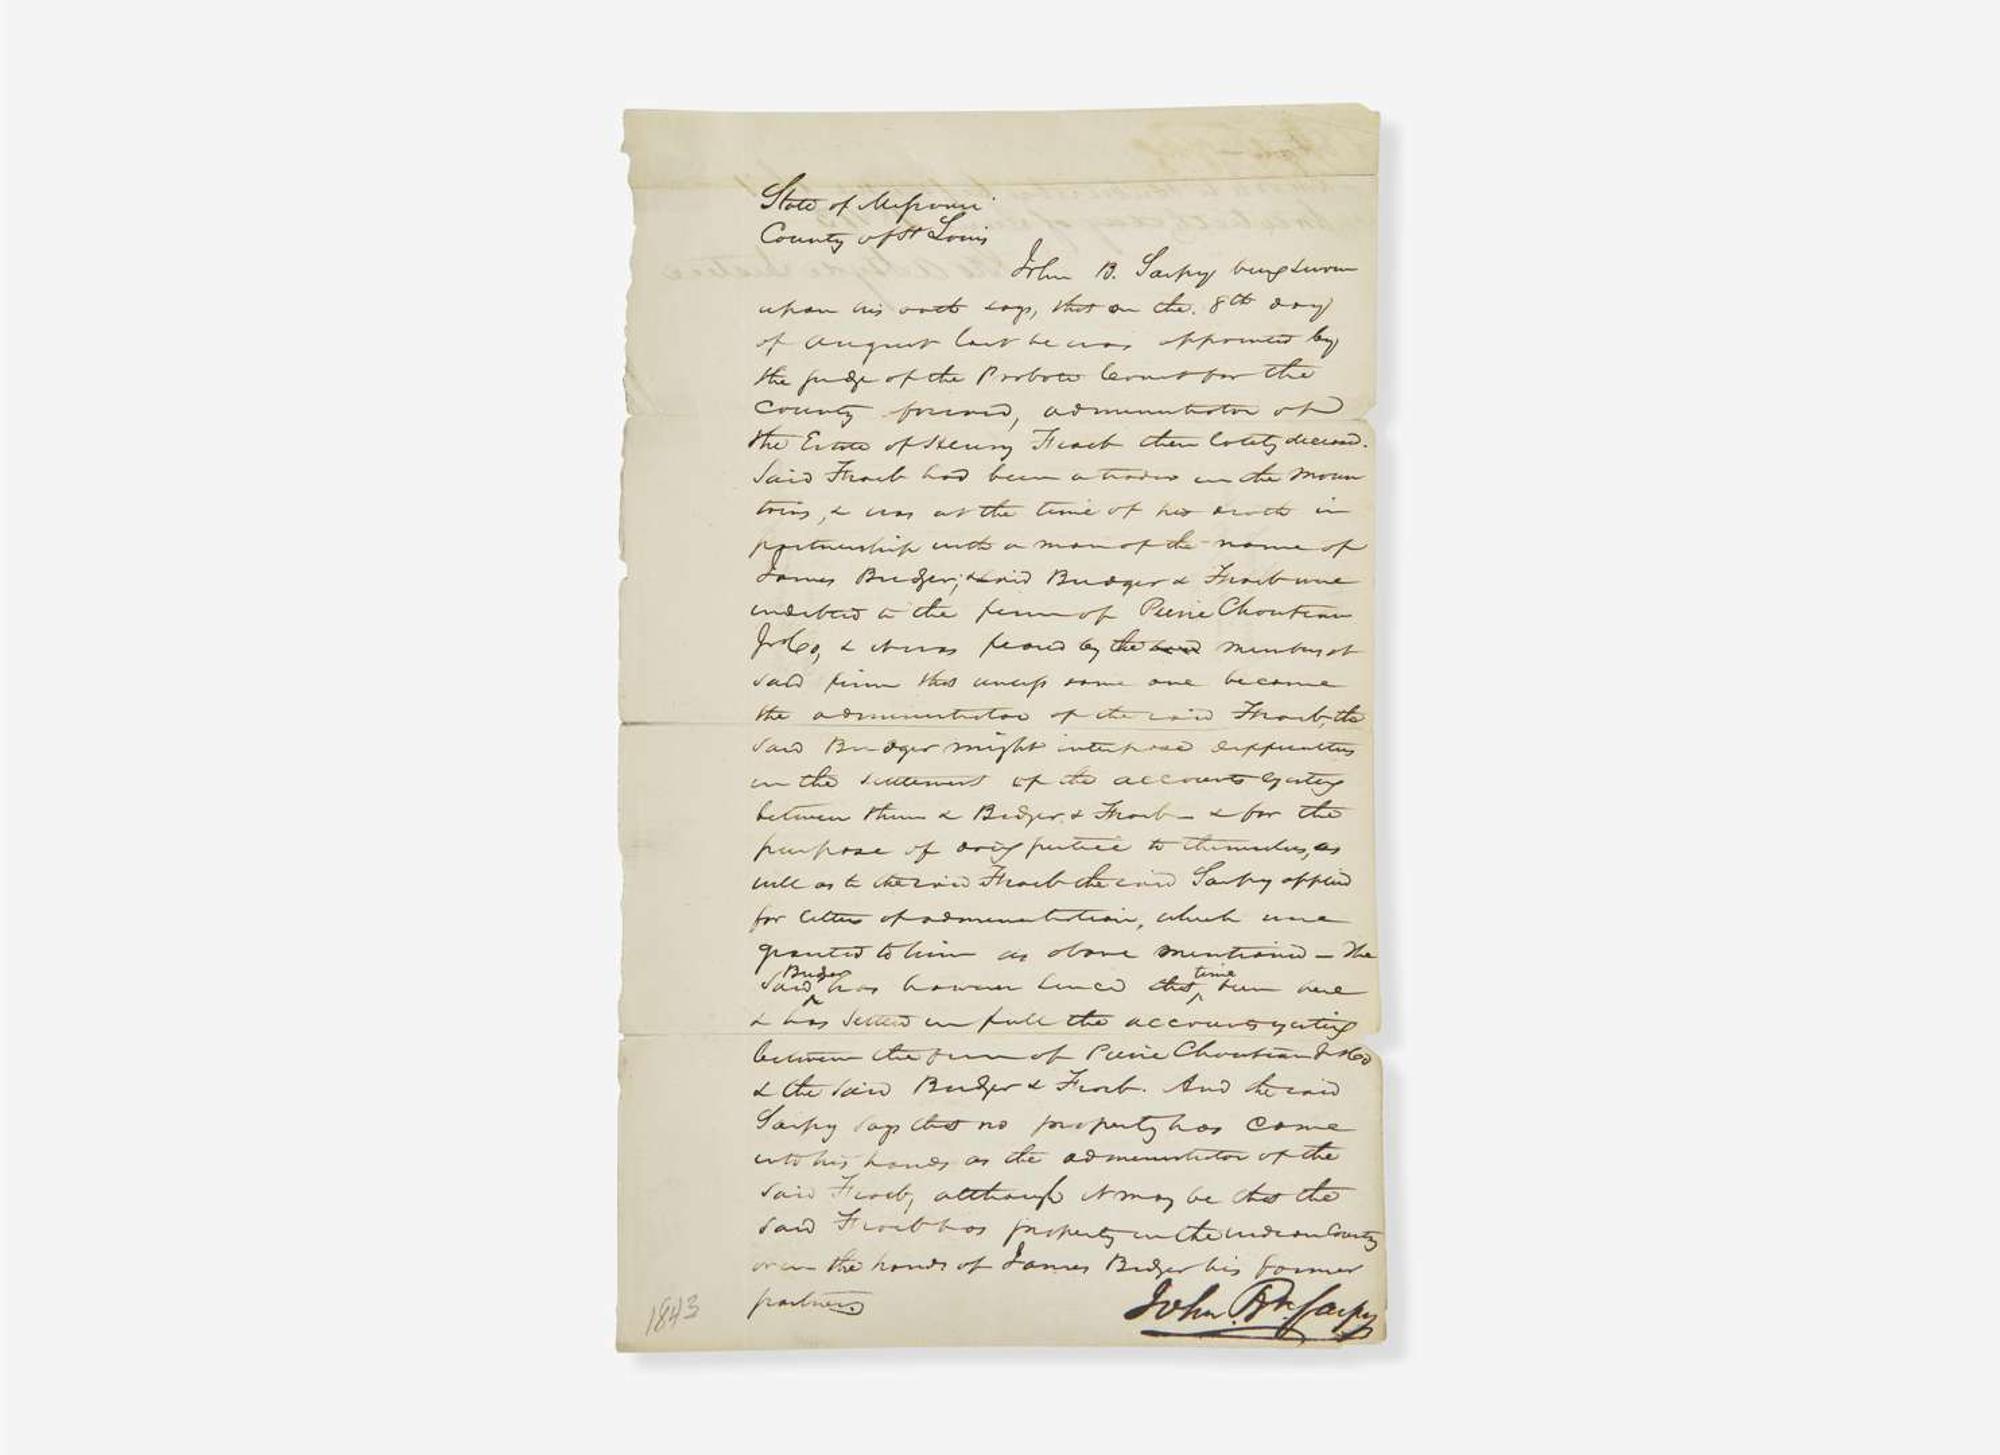 State of Missouri
County of St Louis
John B. Sarpy being sworn
upon his oath says, that on the 8th day
of August last he was appointed by
the judge of the Probate Court for the
County foresaid, administrator of
the Estate of Henry Fraeb then lately deceased.
Said Fraeb had been a trader in the moun
tains, & was at the time of his death in
partnership with a man of the name of
James Bridger; & said Bridger & Fraeb were
indebted to the firm of Pierre Chouteau
Jr & Co, & it was feared by the members of
said firm that unless some one became
the administrator of the said Fraeb, the
said Bridger might interpose difficulties
in the settlement of the accounts existing
between them & Bridger & Fraeb – & for the
purpose of doing justice to themselves, as
well as to the said Fraeb the said Sarpy applied
for letters of administration, which were
granted to him as above mentioned – The
said Bridger has however since that time been here
& has settled in full the accounts existing
between the firm of Pierre Chouteau Jr & Co
& the said Bridger & Fraeb. And the said
Sarpy says that no property has come
into his hands as the administrator of the
said Fraeb, although it may be that the
said Fraeb has property in the indian Country
or in the hands of James Bridger his former
partner
John B. Sarpy
1843